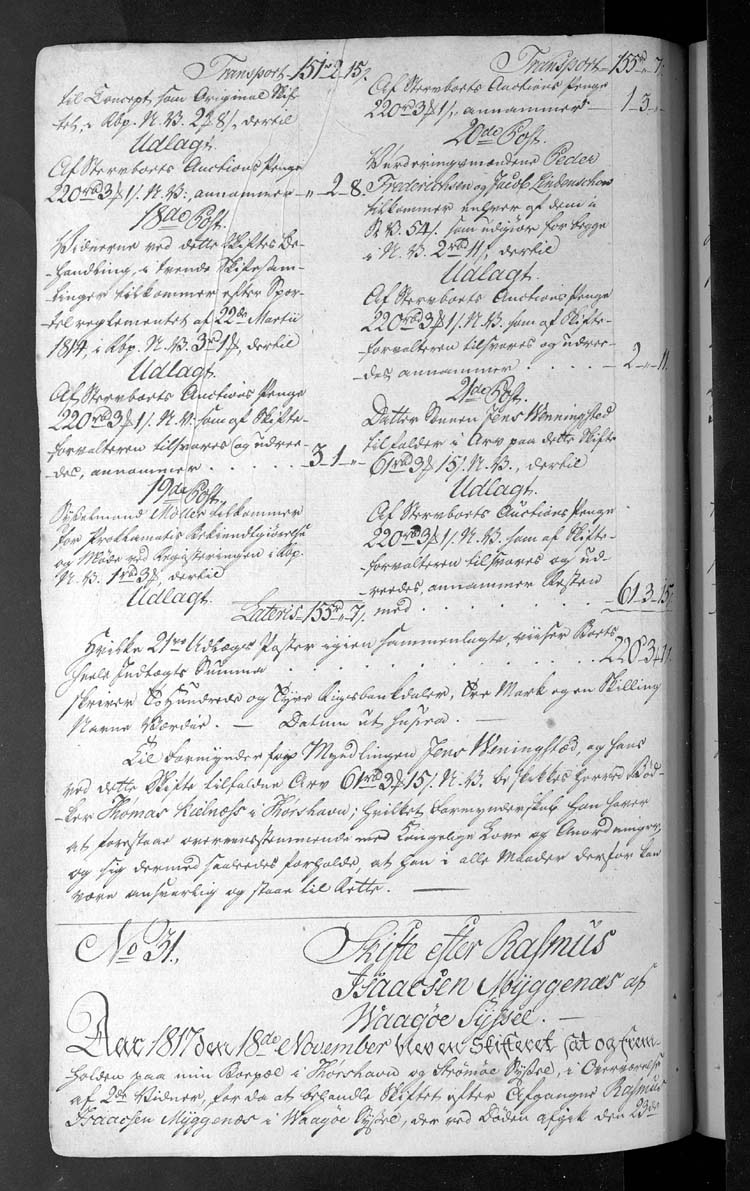 Transport 151rd 2 15/.
til Concept som Original Skif-
tet, i Rbp. N. V. 2 ℳ 8/, dertil
Udlagt.
Af Stervboets Auctions Penge
220rbd 3 ℳ 1/. N. V., annammer - " - 2 - 8.
18de Post.
Vidnerne ved dette Skiftes Be-
handling, i tvende Skiftesam-
linger tilkommer efter Spor-
telreglementet af 22de Martii
1814, i Rbp. N. V. 3rd 1 ℳ, dertil
Udlagt.
Af Stervboets Auctions Penge
220rbd 3 ℳ 1/. N. V. som af Skifte-
forvalteren tilsvares og udree-
des, annammer . . . . . 3 - 1 - "
19de Post.
Sysselmand Müller tilkommer
for Proklamatis Bekiendtgiørelse
og Møde ved Registeringen i Rbp.
N. V. 1rbd 3 ℳ, dertil
Udlagt.
Lateris - 155rd - " - 7/.
Transport - 155rd " 7/.
Af Stervboets Auctions Penge
220rd 3 ℳ 1/., annammer - 1 - 3 - "
20de Post.
Vurderingsmændene Peder
Frederichsen og Jacob Lindenschou
tilkommer enhver af dem i
N. V. 54/. som udgiør for begge
i N. V. 2rbd 11/, dertil
Udlagt.
Af Stervboets Auctions Penge
220rbd 3 ℳ 1/. N. V. som af Skifte-
forvalteren tilsvares og udree-
des annammer . . . . . 2 - " - 11.
21de Post.
Datter Sønnen Jens Wenningsted
tilfalder i Arv paa dette Skifte
61rbd 3 ℳ 15/. N. V., dertil
Udlagt.
Af Stervboets Auctions Penge
220rbd 3 ℳ 1/. N. V. som af Skifte-
forvalteren tilsvares og ud-
reedes, annammer Resten
med . . . . . . . 61 - 3 - 15/
Hvilke 21ve Udlægs Poster igien sammenlagte, viiser Boets
heele Indtægts Summa . . . . . . . 220rd 3 ℳ 1/.
skriver To Hundrede og Tyve Rigsbankdaler, Tre Mark og en Skilling
Navne Værdie. — Datum ut supra. —
Til Formynder for Myndlingen Jens Weningsted, og hans
ved dette Skifte tilfaldne Arv 61rbd 3 ℳ 15/. N. V. beskikkes herved Bød-
ker Thomas Kielnæss i Thorshavn; hvilket Formynderskab han haver
at forestaae overeensstemmende med Kongelige Love og Anordninger,
og sig dermed saaledes forholde, at han i alle Maader derfor kan
være ansvarlig og staae til Rette. —
No 31.
Skifte efter Rasmus
Isaacsen Myggenæs af
Waagøe Syssel. —
Aar 1817 den 18de November blev en Skifteret sat og frem-
holden paa min Bopæl i Thorshavn og Strømøe Syssel, i Overværelse
af 2de Vidner, for da at behandle Skiftet efter Afgangne Rasmus
Isaacsen Myggenæs i Waagøe Syssel, der ved Døden afgik den 23de